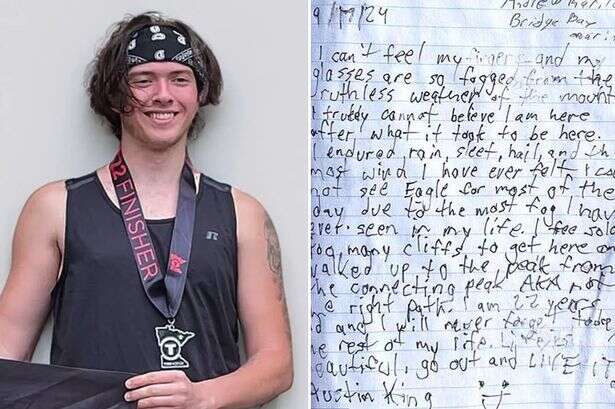 FINISHER
R
T
9/17/24
Bridge Bay
I can't feel my fingers and my
glasses are so fogged from the
ruthless weather of the mount
I truly cannot believe I am here
after what it took to be here.
I endured rain, sleet, hail, and th
most wind I have ever felt I co
not see Eagle for most of the
day due to the most fog I have
ever seen in my life. I free solo
too many cliffs to get here an
walked up to the peak from
the connecting peak AKA not
the right path. I am 22 years
and I will never forget today
the rest of my life. Life is
beautiful, go out and LIVE it
Austin King :)